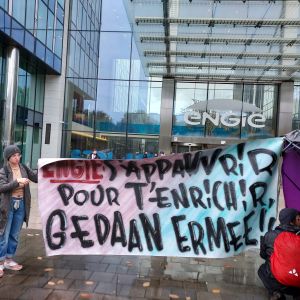 ENGIE
ENGIE S'APPAUVRIR
POUR T'ENRICHIR,
GEDAAN ERMEE!!